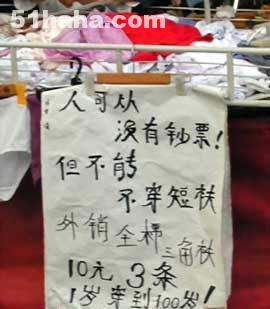 51haha.com
人可从
没有钞票!
但不能
不穿短衭
外销全棉
三角衭
10元 3条
1岁穿到100岁!